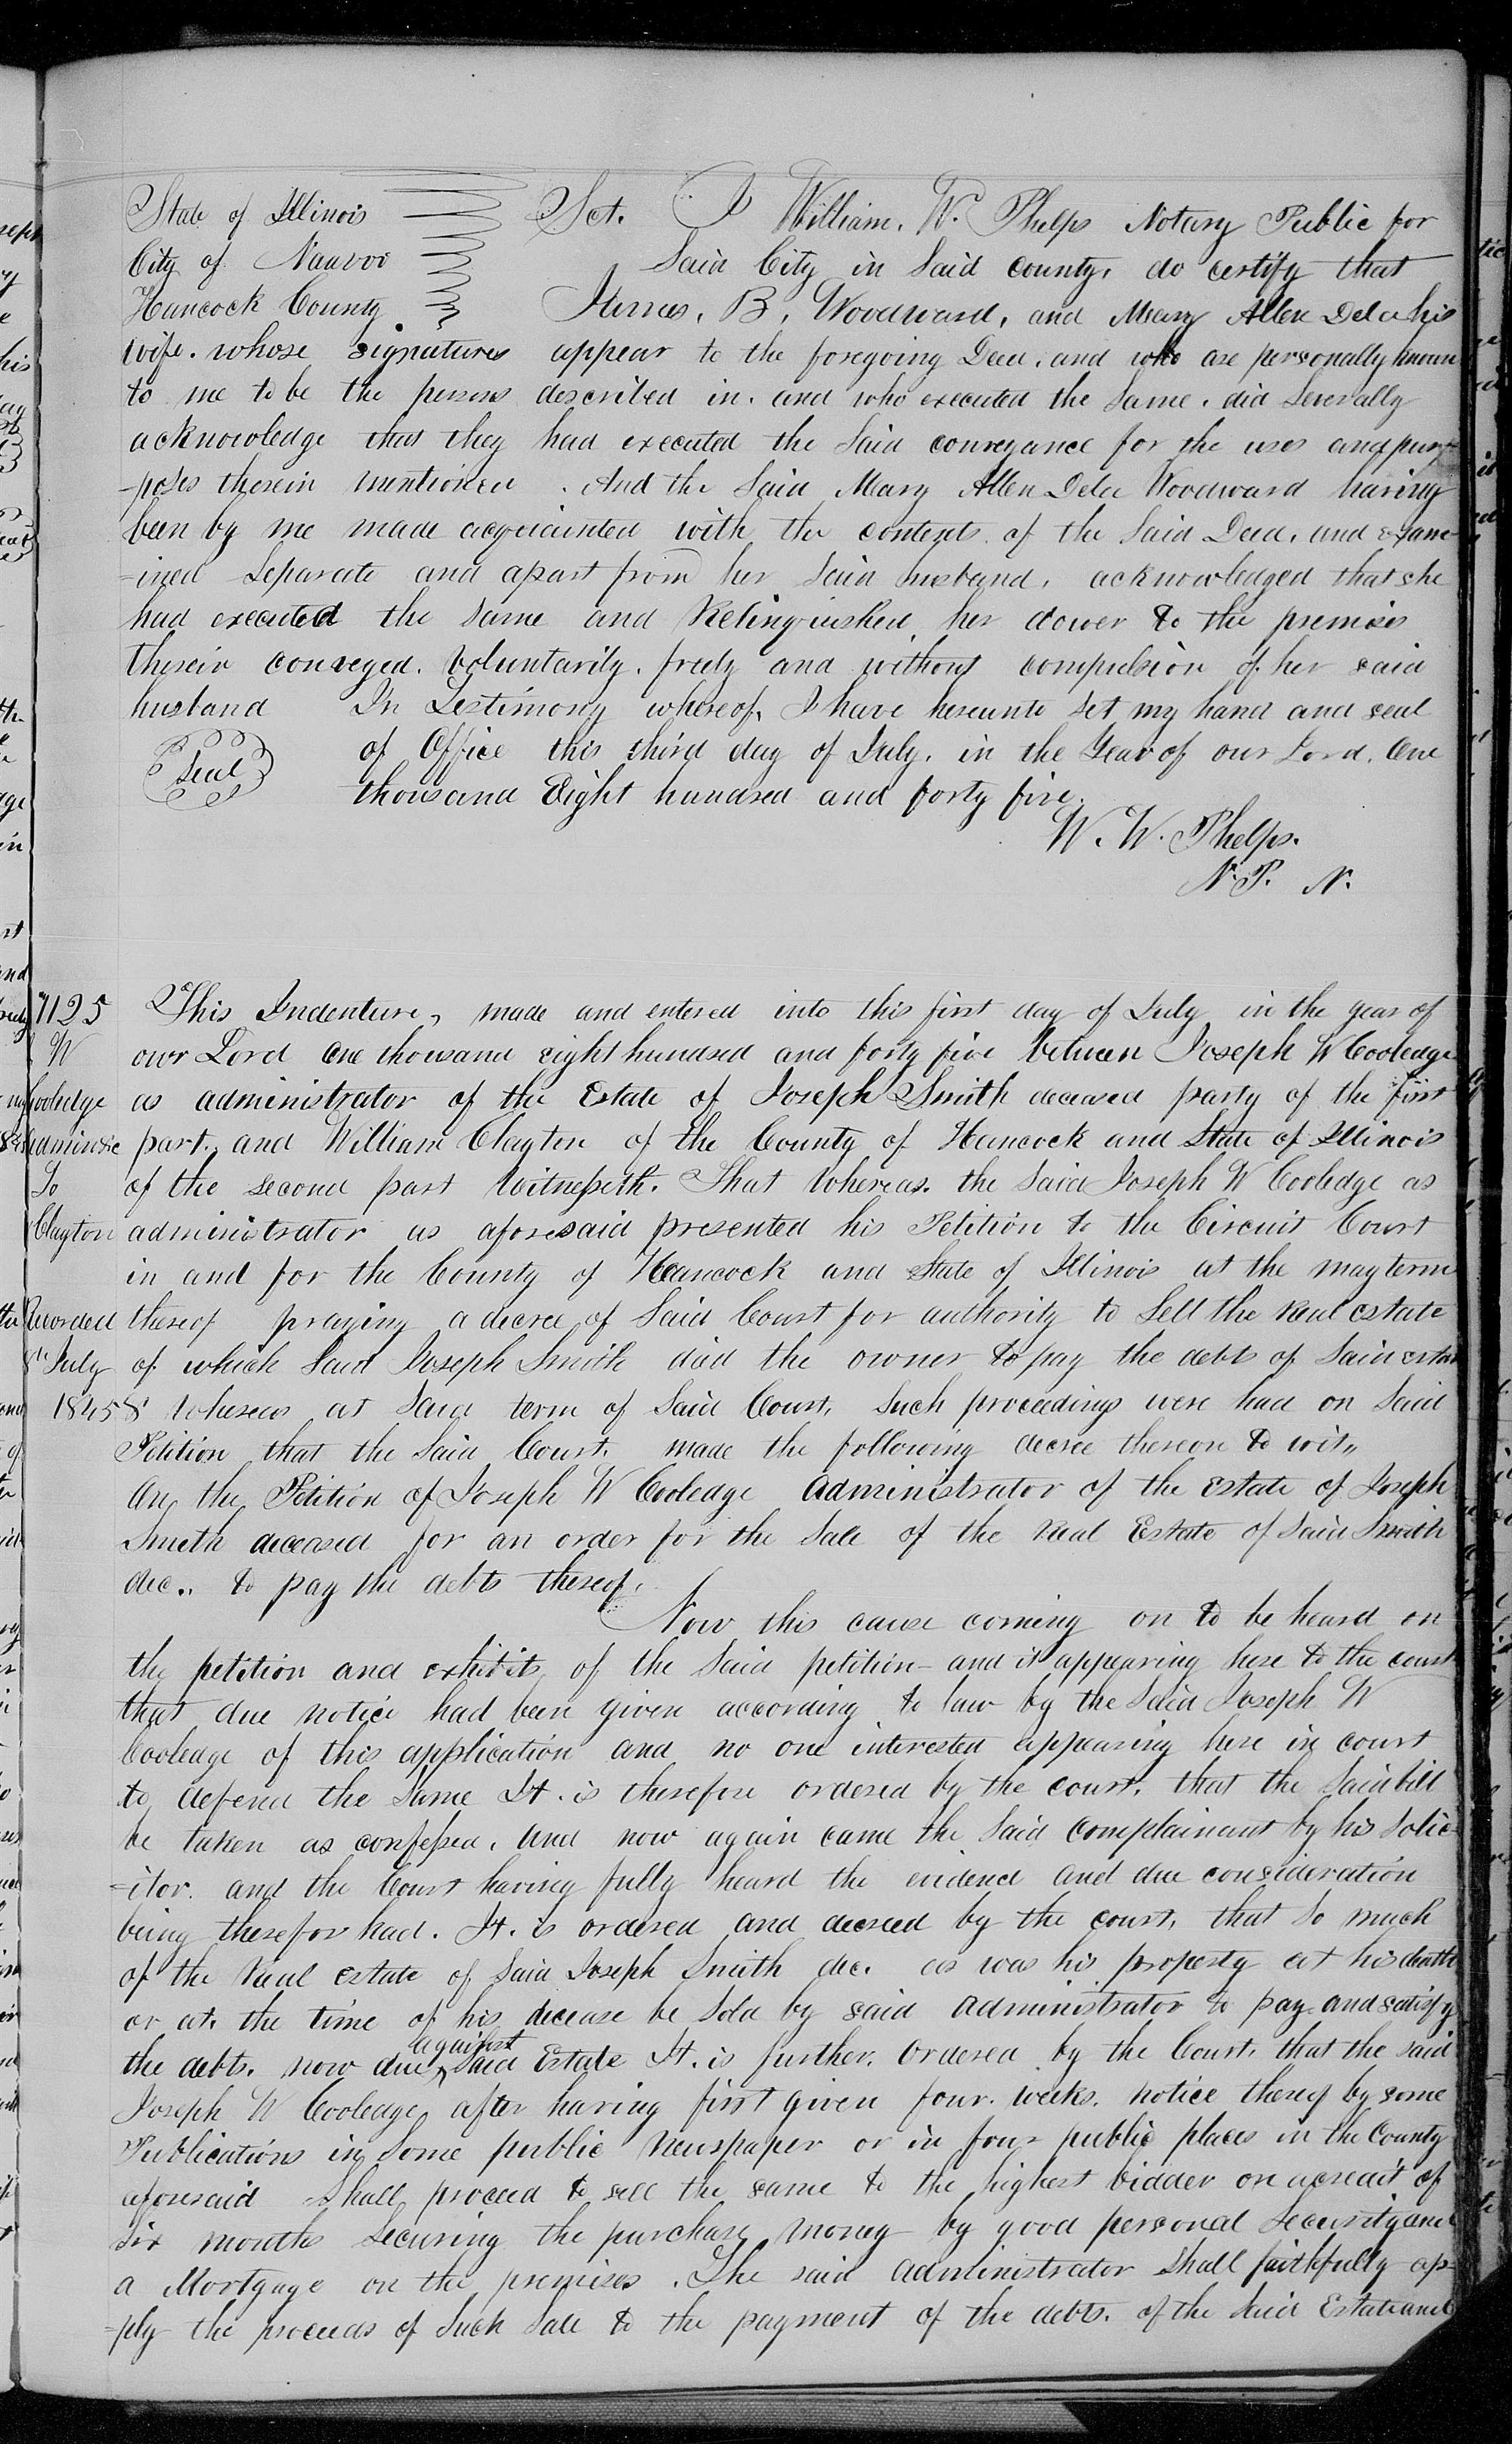 State of Illinois Sct. I William. W. Phelps Notary Public for
City of Nauvoo Said City in Said county, do certify that
Hancock County James, B, Woodward, and Mary Allen Dela his
wife. whose signatures appear to the foregoing Deed. and who are personally known
to me to be the persons described in. and who executed the Same. did Severally
acknowledge that they had executed the Said conveyance for the uses and pur-
-poses therein mentioned. And the Said Mary Allen Dela Woodward having
been by me made acquainted with the contents of the Said Deed, and exam-
=ined Separate and apart from her Said husband, acknowledged that she
had executed the Same and Relinquished her dower to the premises
therein conveyed. Voluntarily. freely and without compulsion of her said
husband In Testimony whereof, I have hereunto set my hand and seal
Seal of Office this third day of July. in the Year of our Lord. One
thousand Eight hundred and forty five.
W. W. Phelps.
N. P. N.
7125 This Indenture, made and entered into this first day of July in the year of
W our Lord One thousand eight hundred and forty five between Joseph W Cooledge
Cooledge as administrator of the Estate of Joseph Smith deceased party of the first
part, and William Clayton of the County of Hancock and State of Illinois
To of the second part Witnesseth. That Whereas. the Said Joseph W Cooledge as
Clayton administrator as aforesaid presented his Petition to the Circuit Court
in and for the County of Hancock and State of Illinois at the may term
Recorded thereof praying a decree of Said Court for authority to Sell the Real estate
8th July of which Said Joseph Smith died the owner to pay the debts of Said estate
1845 & Whereas at Said term of Said Court, Such proceedings were had on Said
Petition that the Said Court. made the following decree thereon to wit,,
On the Petition of Joseph W Cooledge Administrator of the Estate of Joseph
Smith deceased for an order for the Sale of the Real Estate of Said Smith
dec.. to pay the debts thereof.
Now this cause coming on to be heard on
the petition and exhibits of the Said petition- and it appearing here to the court
that due notice had been given according to law by the Said Joseph W
Cooledge of this application and no one interested appearing here in court
to defend the Same It. is therefore ordered by the court, that the Said bill
be taken as confessed. And now again came the Said Complainant by his Solic=
=itor. and the Court having fully heard the evidence and due consideration
being therefor had. It. is ordered and decreed by the court, that So much
of the Real estate of Said Joseph Smith dec. as was his property at his death
or at. the time of his decease be Sold by said Administrator to pay-and satisfy
the debts. now due against Said Estate It. is further. Ordered by the Court. that the said
Joseph W Cooledge after having first given four. weeks. notice thereof by some
Publications in Some public Newspaper or in four public places in the County
aforesaid Shall proceed to sell the same to the highest bidder on a credit of
Six months Securing the purchase money by good personal Security and
a Mortgage on the premises. The said Administrator Shall faithfully ap-
=ply the proceeds of Such Sale to the payment of the debts. of the Said Estate and